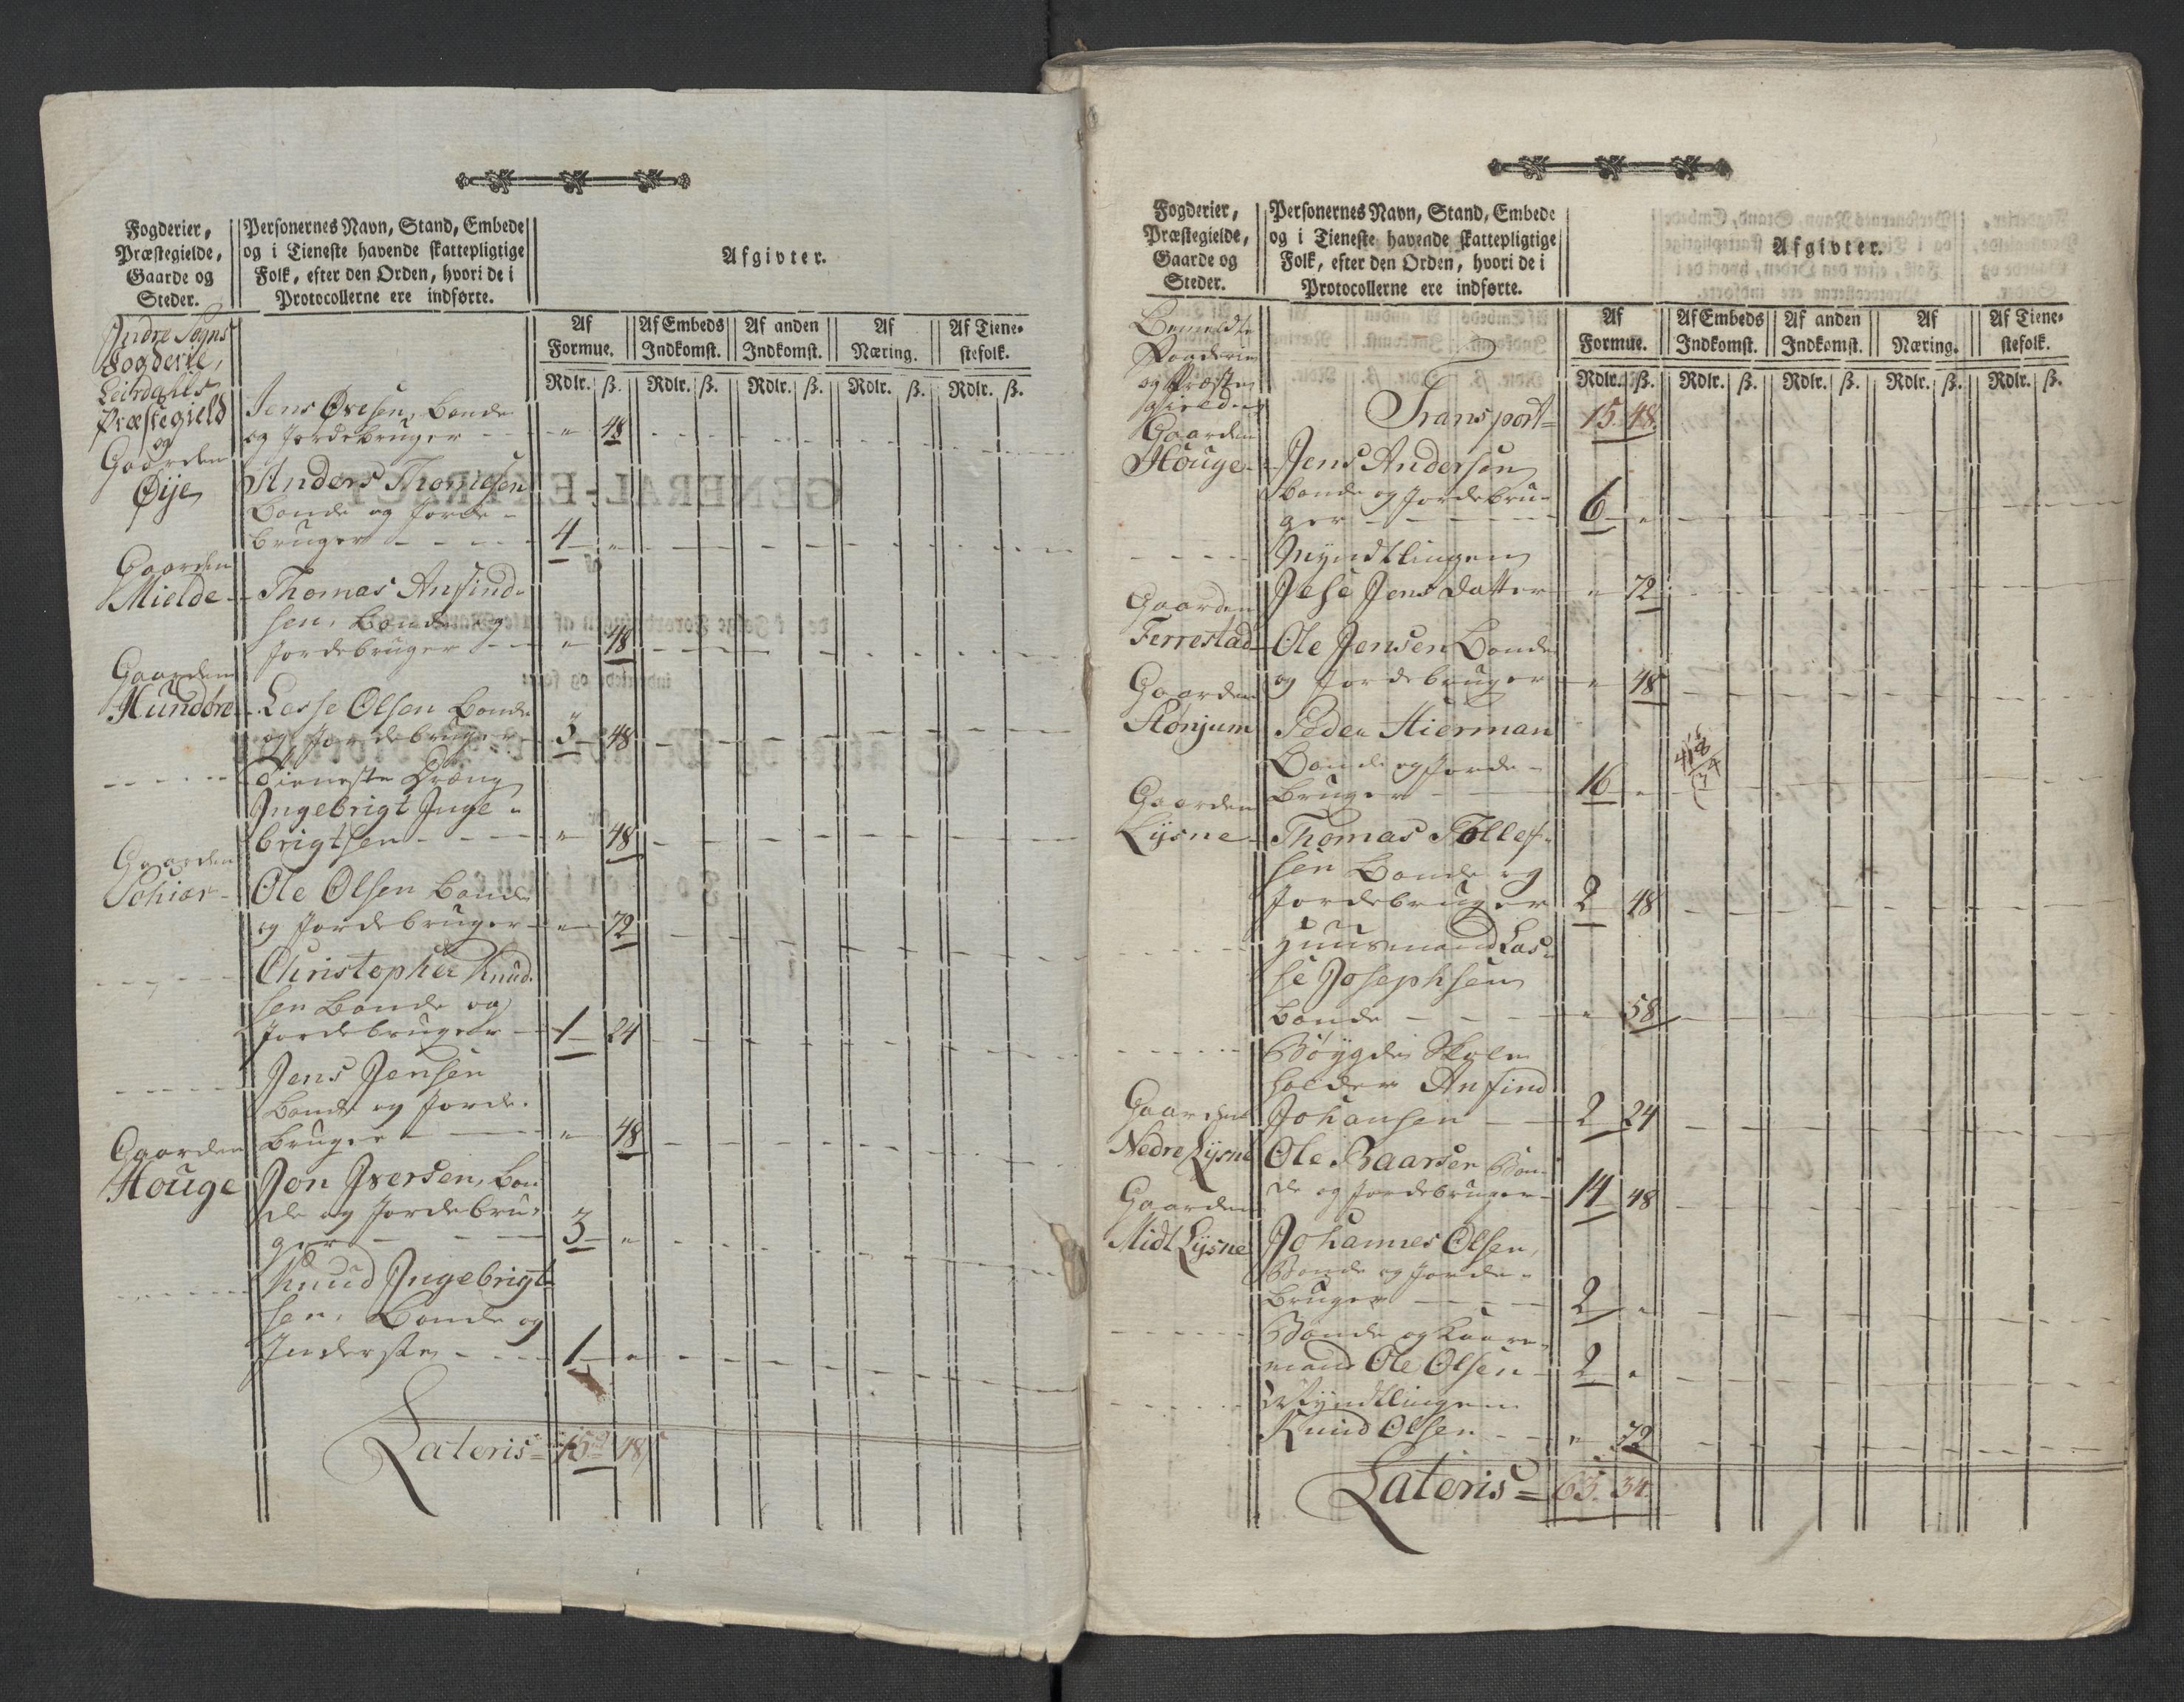 Fogderier,
Præstegielde,
Gaarde og
Steder.
Personernes Navn, Stand, Embede
og i Tieneste havende skattepligtige
Folk, efter den Orden, hvori de i
Protocollerne ere indførte.
Afgivter.
Af
Formue.
Af Embeds
Indkomst.
Af anden
Indkomst.
Af
Næring.
Af Tiene-
stefolk.
Rdlr. ß. Rdlr. ß. Rdlr. ß. Rdlr. ß. Rdlr. ß.
Indre Sogns
Fogderie,
Leirdahls
Præstegield
og
Gaarden
Øije
Jens Øvesen, Bonde
og Jordebruger - - " 48
Anders Thomesen
Bonde og Jorde-
bruger - - - - 4 "
Gaarden
Mielde - Thomas Anfind-
sen, Bonde og
Jordebruger - - " 48
Gaarden
Hundøre - Lasse Olsen Bonde
og Jordebruger - 3 48
Tieneste Dreng
Ingebrigt Inge-
brigtsen - - - " 48
Gaarden
Schiør - Ole Olsen Bonde
og Jordebruger - " 72
Christopher Knud-
sen Bonde og
Jordebruger - 1 24
Jens Jensen
Bonde og Jorde-
bruger - - " 48
Gaarden
Houge Jon Iversen, Bon-
de og Jordebru-
ger - - - 3 "
Knud Ingebrigt-
sen, Bonde og
Inderste - - - 1 "
Lateris = 15 48
Fogderier,
Præstegielde,
Gaarde og
Steder.
Personernes Navn, Stand, Embede
og i Tieneste havende skattepligtige
Folk, efter den Orden, hvori de i
Protocollerne ere indførte.
Afgivter.
Af
Formue.
Af Embeds
Indkomst.
Af anden
Indkomst.
Af
Næring.
Af Tiene-
stefolk.
Rdlr. ß. Rdlr. ß. Rdlr. ß. Rdlr. ß. Rdlr. ß.
Bemeldte
Fogderie
og Præste
gield
Transport = 15. 48.
Gaarden
Houge - Jens Andersen
Bonde og Jordebru-
ger - - - - 6 "
Myndtlingen
Jese Jens Datter " 72
Gaarden
Ferrestad - Ole Jensen Bonde
og Jordebruger " 48
Gaarden
Stønjum Peder Hierman
Bonde og Jorde-
bruger - - 16 "
Gaarden
Lysne - Thomas Tollef-
sen Bonde og
Jordebruger 2 48
Huusmand Las-
se Josephsen
Bonde - - - " 58
Bøygde Skole
holder Anfind
Johansen - - 2 24
Gaarden
Nedre Lysne Ole Baarsen Bon-
de og Jordebruger - 14 48
Gaarden
Midt Lysne Johannes Olsen,
Bonde og Jorde-
bruger - - - 2 "
Bonde og Kaare-
mand Ole Olsen - 2 "
Myndtlingen
Knud Olsen - - " 72
Lateris = 63. 34.